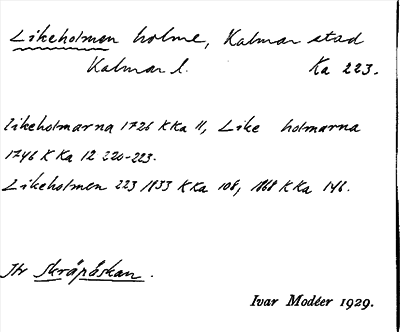 Likeholmen holme, Kalmar stad
Kalmar l. Ka 223.
likeholmarna 1726 KKa 11, Like holmarna
1746 KKa 12 220-223.
Likeholmen 223 1833 KKa 108, 1868 KKa 146.
Jfr Skräpåskan.
Ivar Modéer 1929.